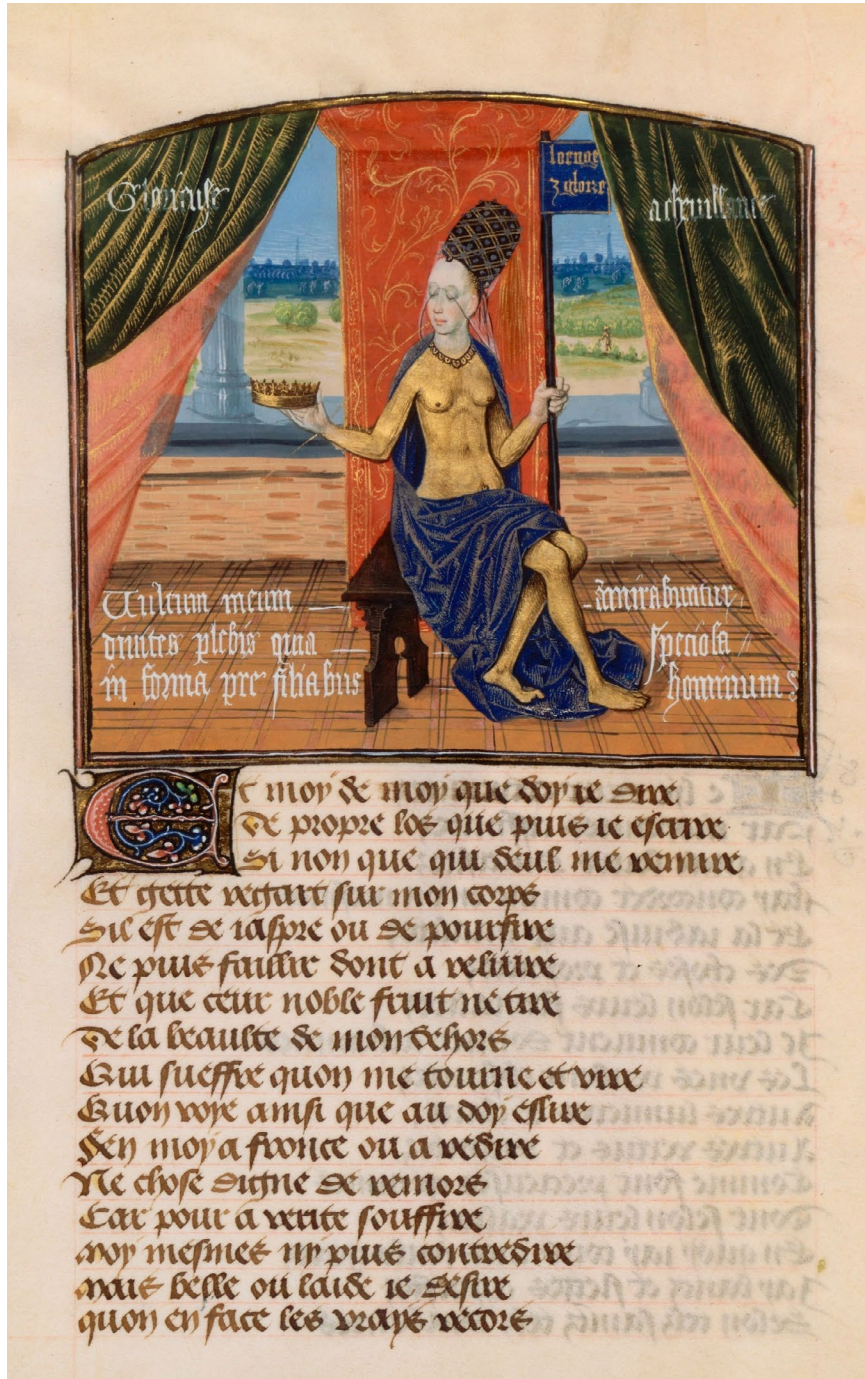 Glorieuse
acheuissance
loenge
z gloire
Vultum meum
diuites plebis quia
in forma pre filiabus
amirabuntur
speciosa
hominum
Et moy de moy que doy ie dire
De propre los que puis ie escrire
Si non que qui deul me remire
Et gette regart sur mon corps
Sil est de iaspre ou de pourfire
Ne puis faillir dont a reluire
Et que ceur noble fruit ne tire
De la beaulte de mon dehors
Qui sueffre quon me tourne et vire
Quon voye ainsi que au doy eslire
Sen moy a fronce ou a redire
Ne chose digne de remors
Car pour a verite souffire
Moy mesmes ny puis contredire
Mais belle ou laide ie desire
quon en face les vrays recors